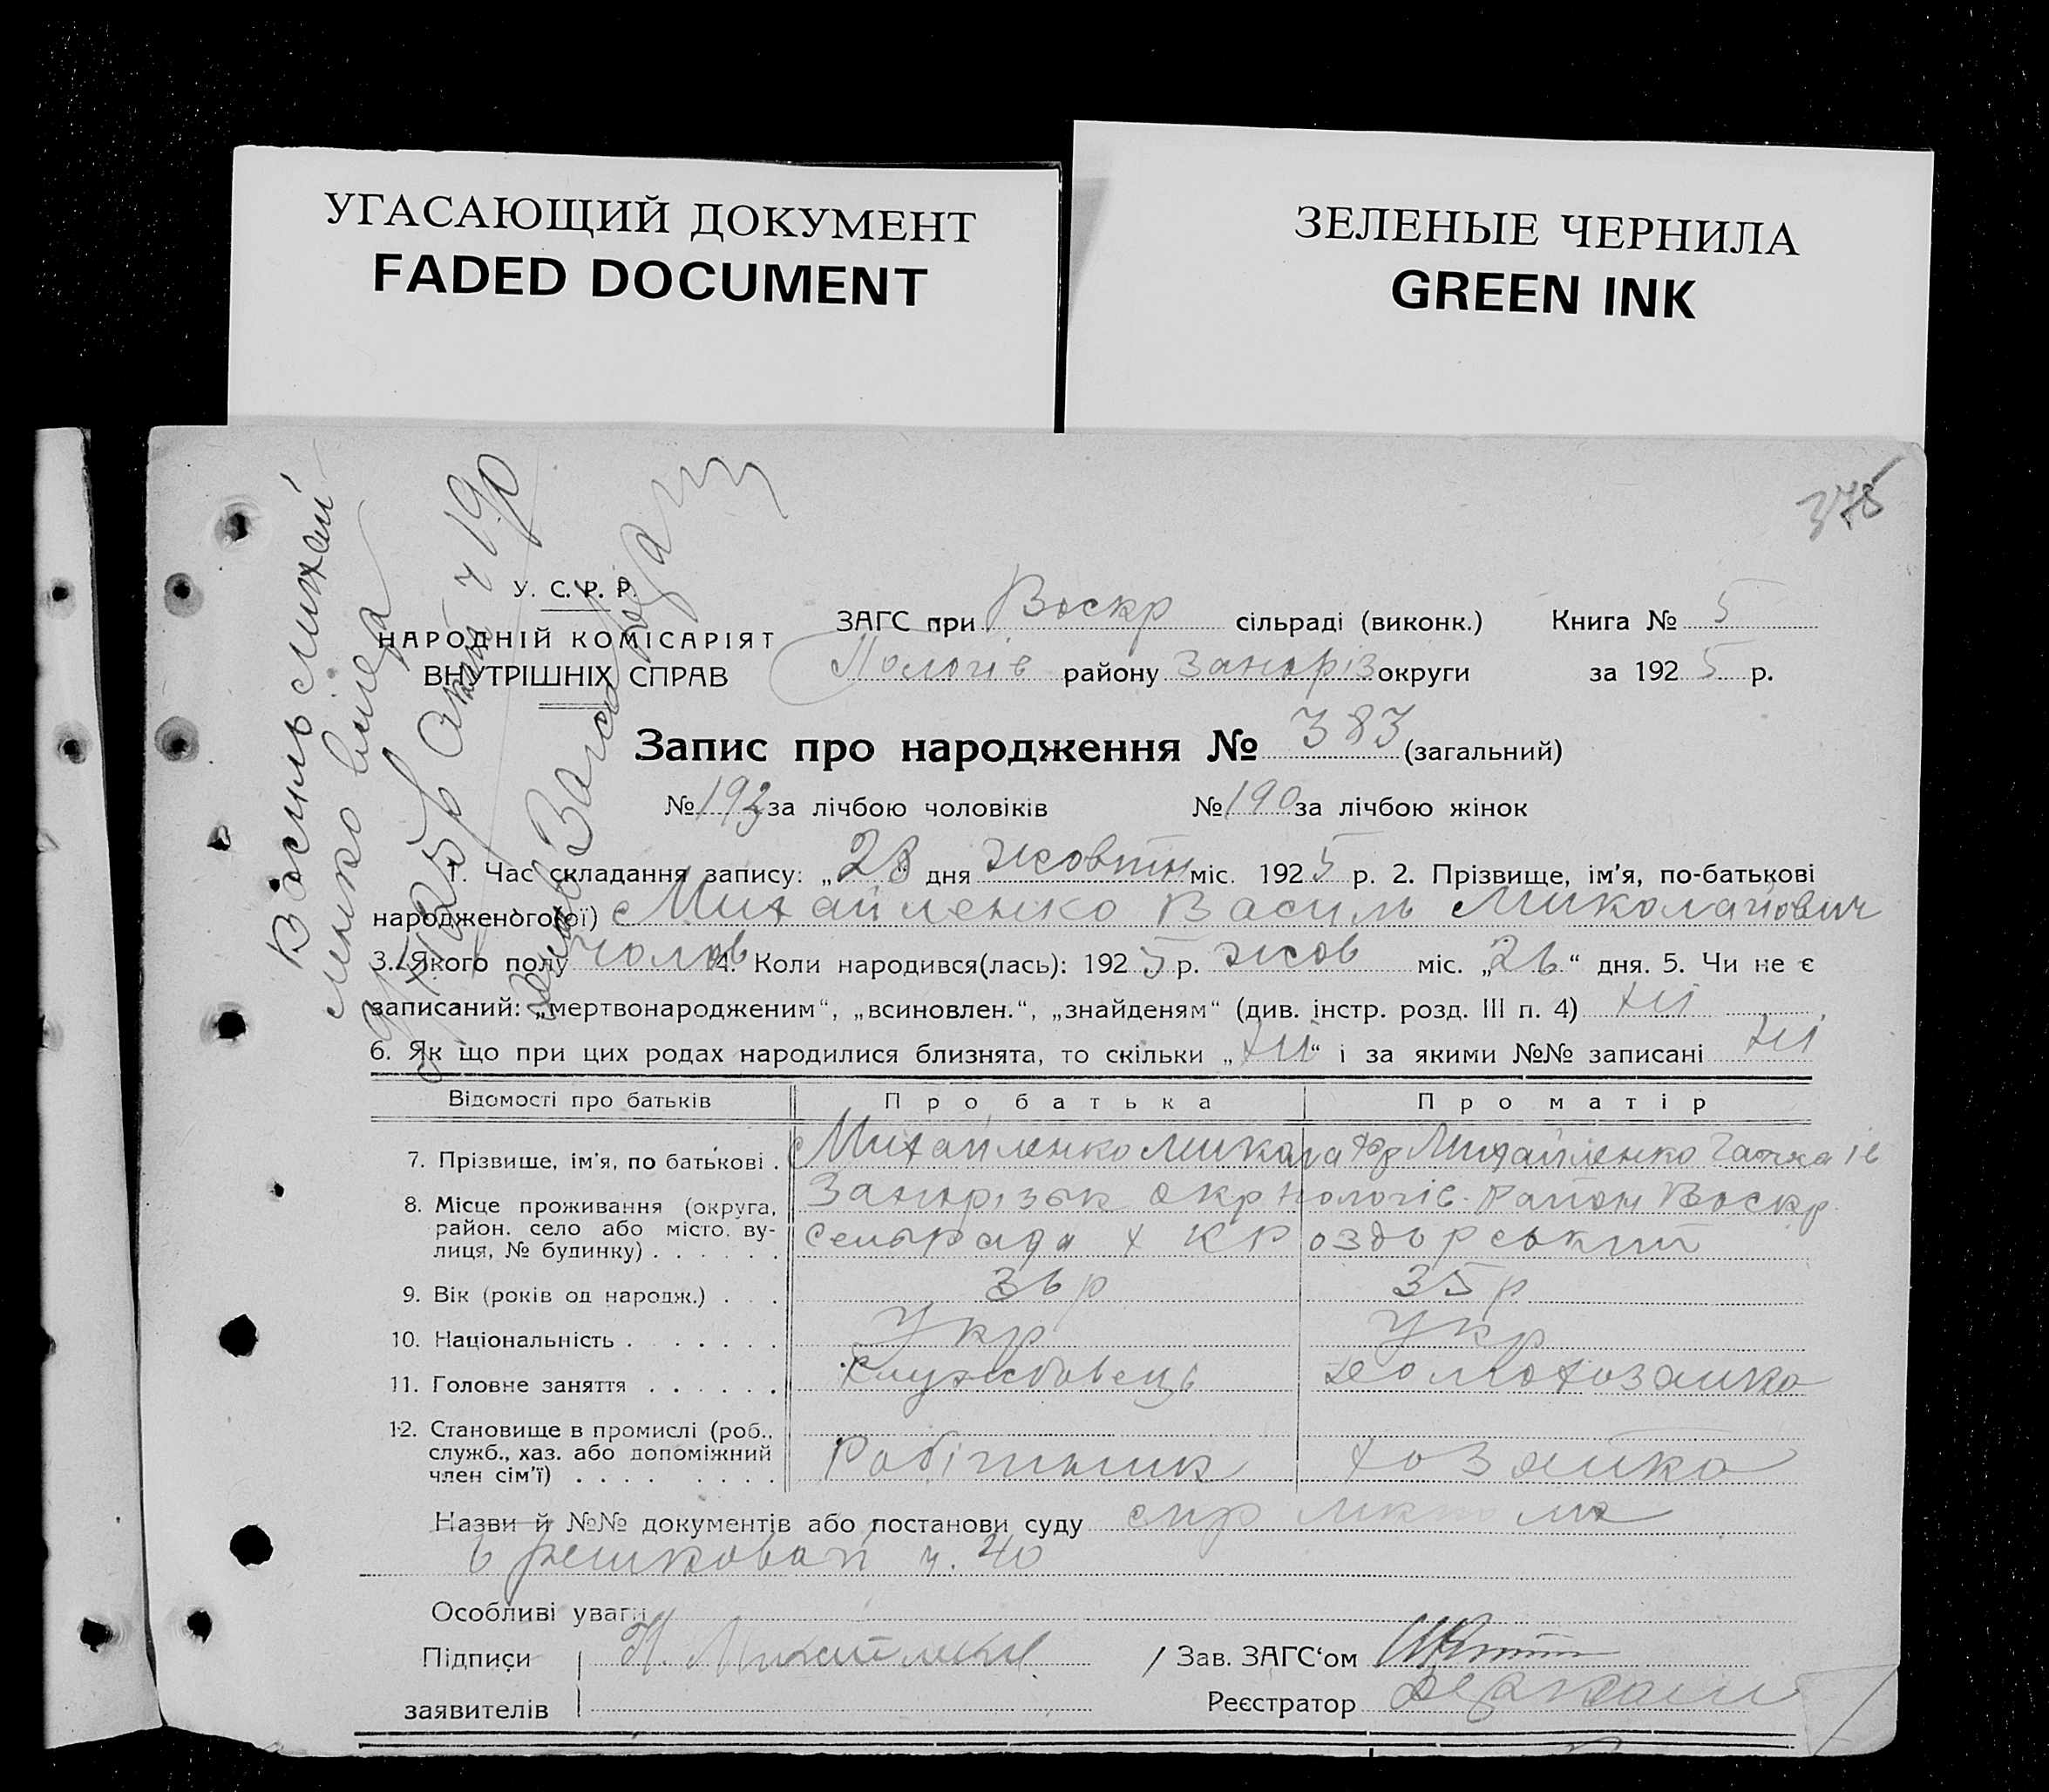 УГАСАЮЩИЙ ДОКУМЕНТ
FADED DOCUMENT
ЗЕЛЕНЫЕ ЧЕРНИЛА
GREEN INK
375
У. С. Р. Р.
НАРОДНІЙ КОМІСАРІЯТ
ВНУТРІШНІХ СПРАВ
ЗАГС при Воскр сільраді (виконк.) Книга № 5
Пологів району Запоріз округи за 1925 р.
Запис про народження № 383 (загальний)
№ 193 за лічбою чоловіків № 190 за лічбою жінок
1. Час складання запису: „28“ дня жовтн міс. 1925 р. 2. Прізвище, ім'я, по-батькові
народженого(ої) Михайленко Василь Миколайович
3. Якого полу чолов 4. Коли народився(лась): 1925 р. жов міс. „26“ дня. 5. Чи не є
записаний: „мертвонародженим“, „всиновлен.“, „знайденям“ (див. інстр. розд. III п. 4) ні
6. Як що при цих родах народилися близнята, то скільки „ні“ і за якими №№ записані ні
Відомості про батьків Про батька Про матір
7. Прізвише, ім'я, по батькові . Михайленко Микола Михайленко
8. Місце проживання (округа, район. село або місто. вулиця, № будинку) . . . . . . Запорізьк окр Пологів. район Воскр
Сельрада х
9. Вік (років од народж.) . . 36 р 35 р
10. Національність . . . . . . . Укр Укр
11. Головне заняття . . . . . . Службовець домохозяйка
12. Становище в промислі (роб., служб., хаз. або допоміжний член сім'ї) . . . . . . . . Робітник хозяйка
Назви й №№ документів або постанови суду
ч. 40
Особливі уваги
Підписи Н. Михайленко / Зав. ЗАГС'ом
заявителів Реєстратор